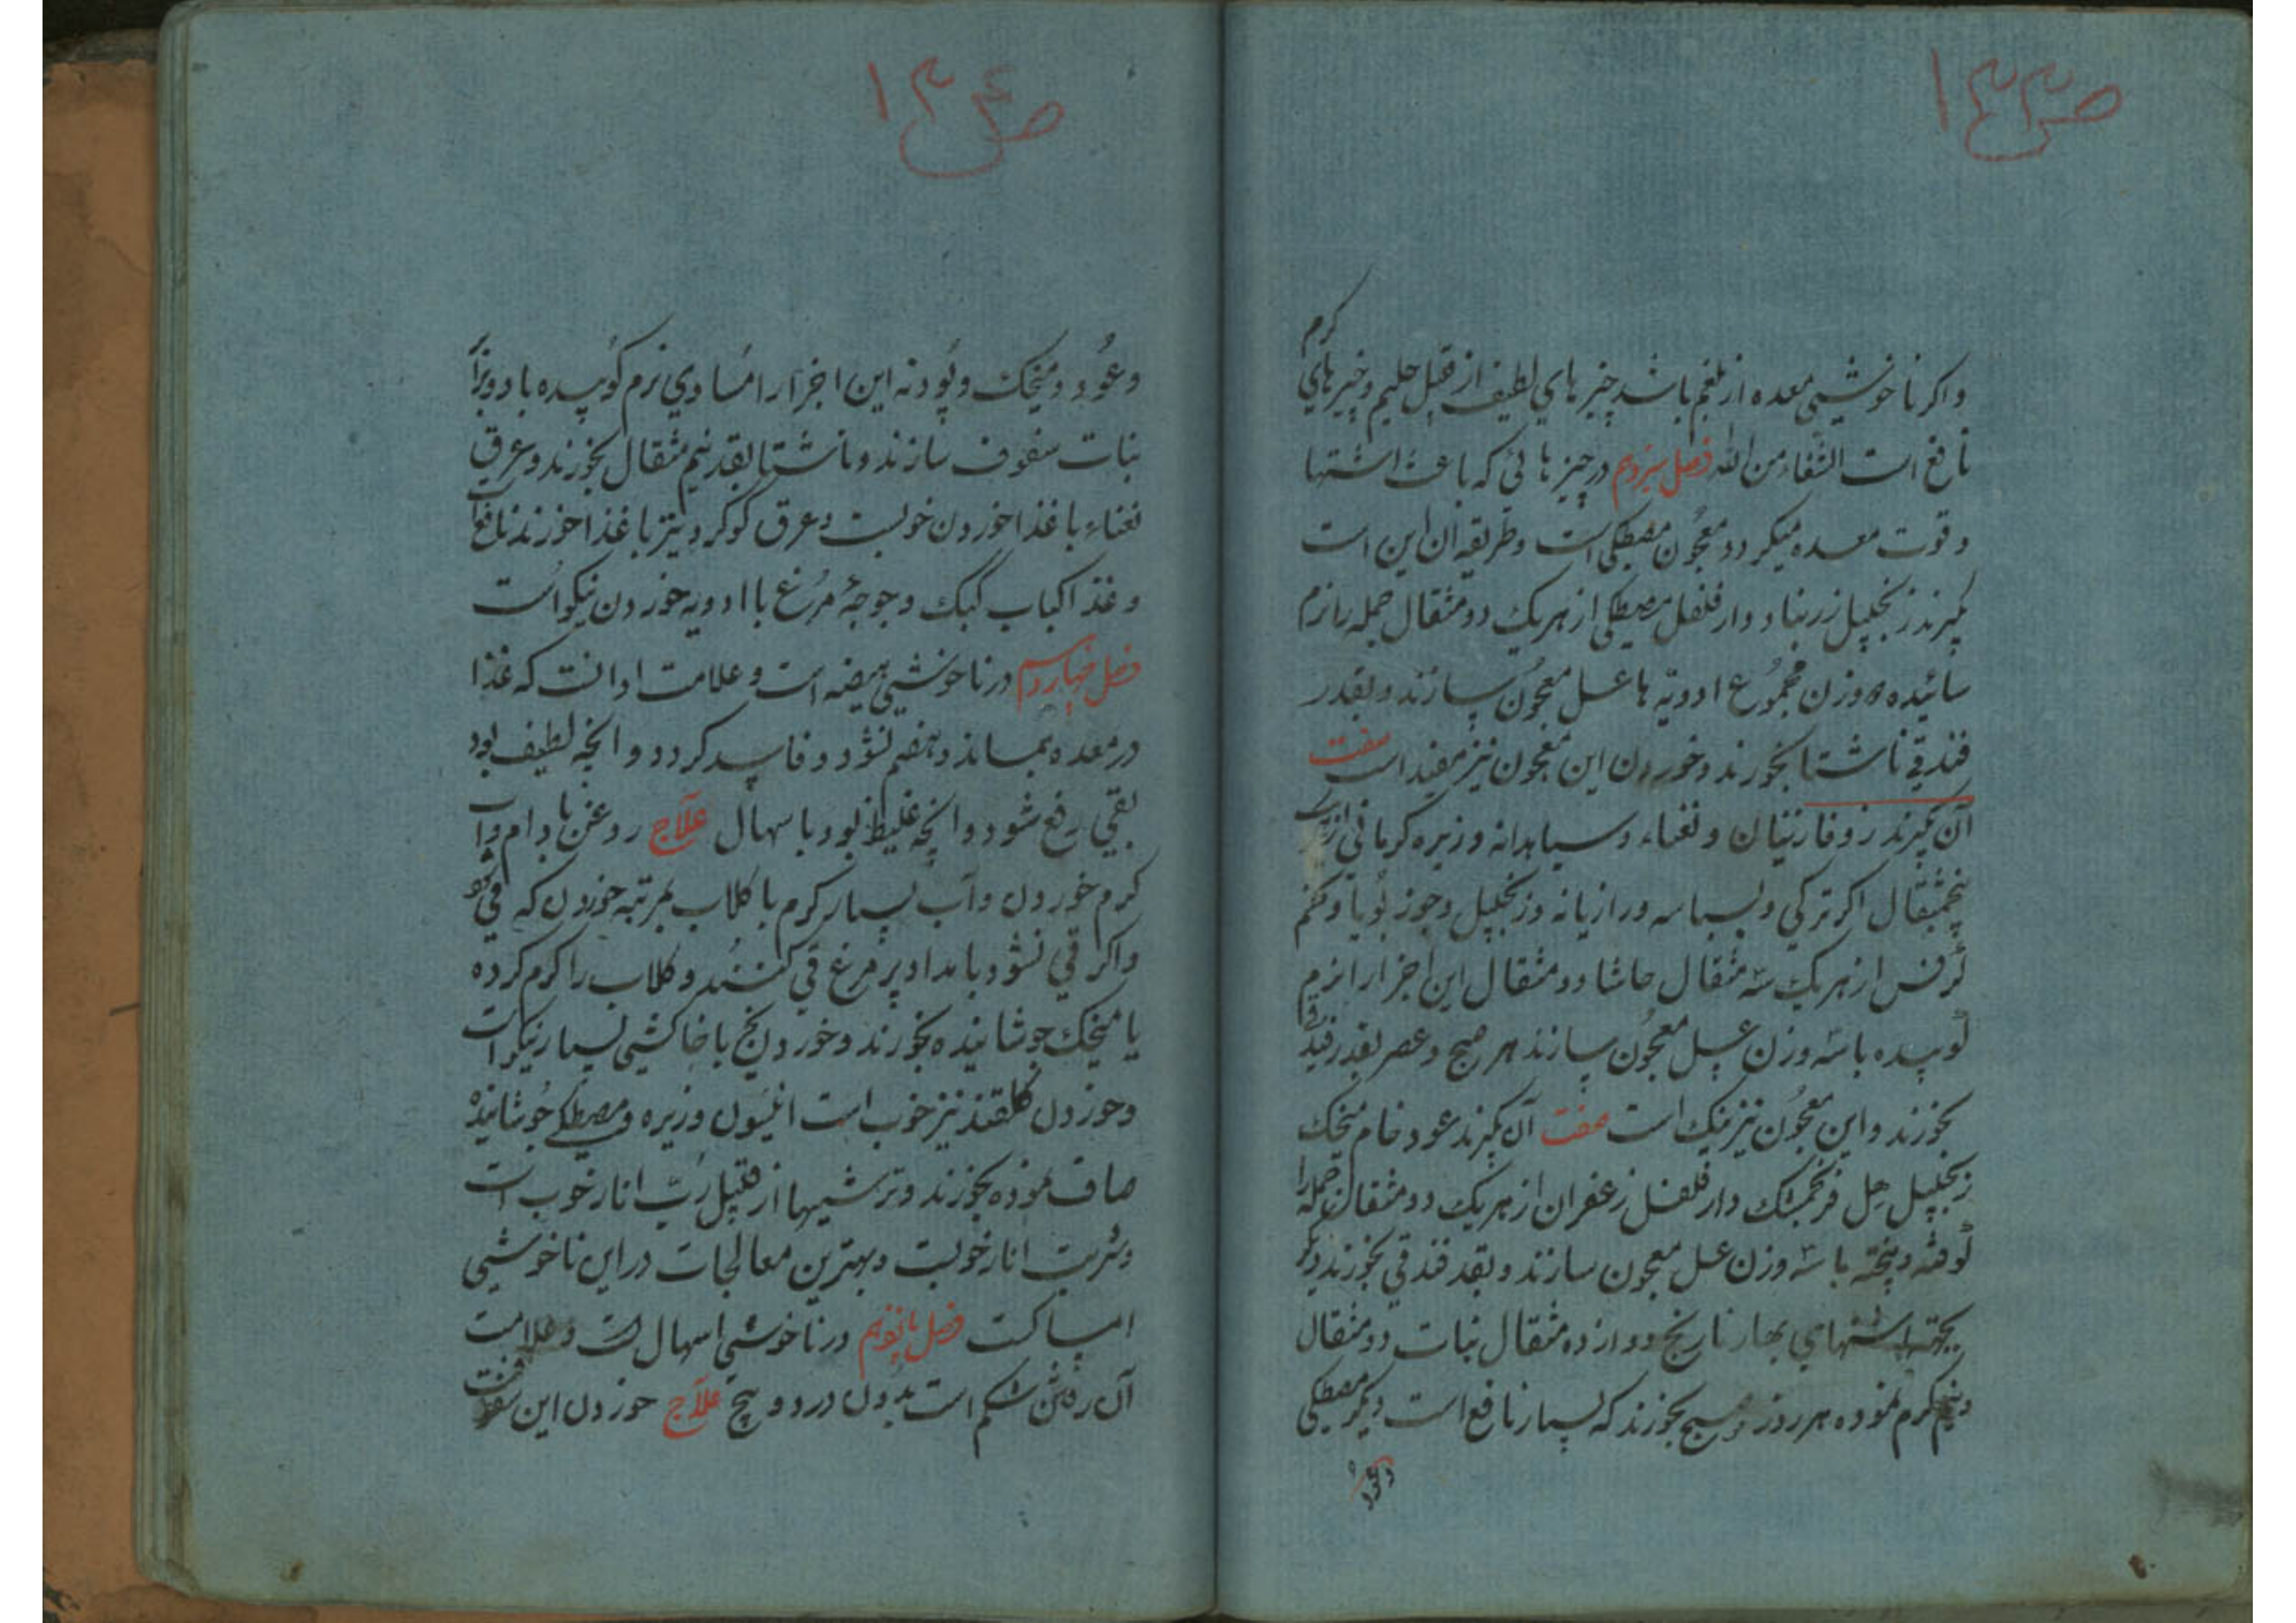 ص۱۳۳
واکر ناخوشیی معده از بلغم باشد چیز های لطیف از قبیل حلیم و چیزهای کرم
نافع است الشفاء من الله فصل سیزدهم در چیز هائی که باعث اشتها
و قوت معده میکردد معجون مصطکی است و طریقه آن این است
بکیرند زنجبیل زرنباد دارفلفل مصطکی از هریک دو مثقال جمله را نرم
سائیده وزن مجموع ادویه ها عسل معجون سازند و بقدر
فندقی ناشتا بخورند و خوردن این معجون نیز مفید است صفت
آن بکیرند زوفا و نعناء و سیاهدانه و زیره کرمانی از
پنجمثقال اکر ترکی و بسباسه و رازیانه و زنجبیل و جوز بویا و تخم
کرفس از هریک سه مثقال حاشا دو مثقال این اجزا را نرم
کوبیده با سه وزن عسل معجون سازند هر صبح و عصر بقدر
بخورند و این معجون نیز نیک است صفت آن بکیرند عود خام میخک
زنجبیل هل فرنجمشک دارفلفل زعفران از هریک دو مثقال جمله را
کوفته و پخته با سه وزن عسل معجون سازند و بقدر فندقی بخورند دیکر
بجهة اشتهای بهار نارنج دوازده مثقال نبات دو مثقال
کرم نموده هر روز صبح بخورند که بسیار نافع است دیکر مصطکی
وعود
ص۱۳۴
وعود و میخک و پودنه این اجزا را مساوی نرم کوبیده با دو برابر
نبات سفوف سازند و ناشتا بقدر نیم مثقال بخورند و عرق
نعناء با غذا خوردن خوبست و عرق کوکرد نیز با غذا خورند نافع است
و غذا کباب کبک و جوجهٔ مرغ با ادویه خوردن نیکو است
فصل چهاردهم در ناخوشیی هیضه است و علامت او انست که غذا
در معده بماند و هضم نشود و فاسد کردد و انچه لطیف بود
بقیی رفع شود و انچه غلیظ بود با سهال علاج روغن بادام و آب
کرم خوردن و آب بسیار کرم با کلاب بمرتبه خوردن که قی شود
واکر قی نشود بامداد پر مرغ قی کنند و کلاب را کرم کرده
یا میخک جوشانیده بخورند و خوردن یخ با خاکشی بسیار نیکو است
و خوردن کلقند نیز خوب است انیسون و زیره و مصطکی جوشانیده
صاف نموده بخورند و ترشیها از قبیل رب انار خوب است
و شربت انار خوبست و بهترین معالجات در این ناخوشیی
امساکست فصل پانزدهم در ناخوشیی اسهال است و علامت
آن رفتن شکم است بدون درد و پیچ علاج خوردن این سفوف